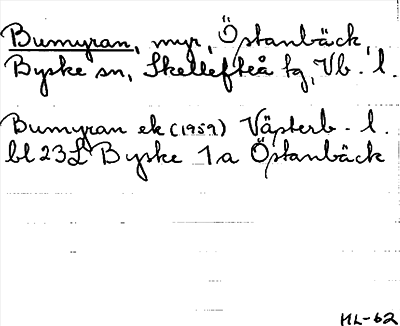 Bumyran, myr, Östanbäck,
Byske sn, Skellefteå tg, Vb. l.
Bumyran ek (1959) Västerb. l.
bl 23L Byske 1a Östanbäck
HL-62